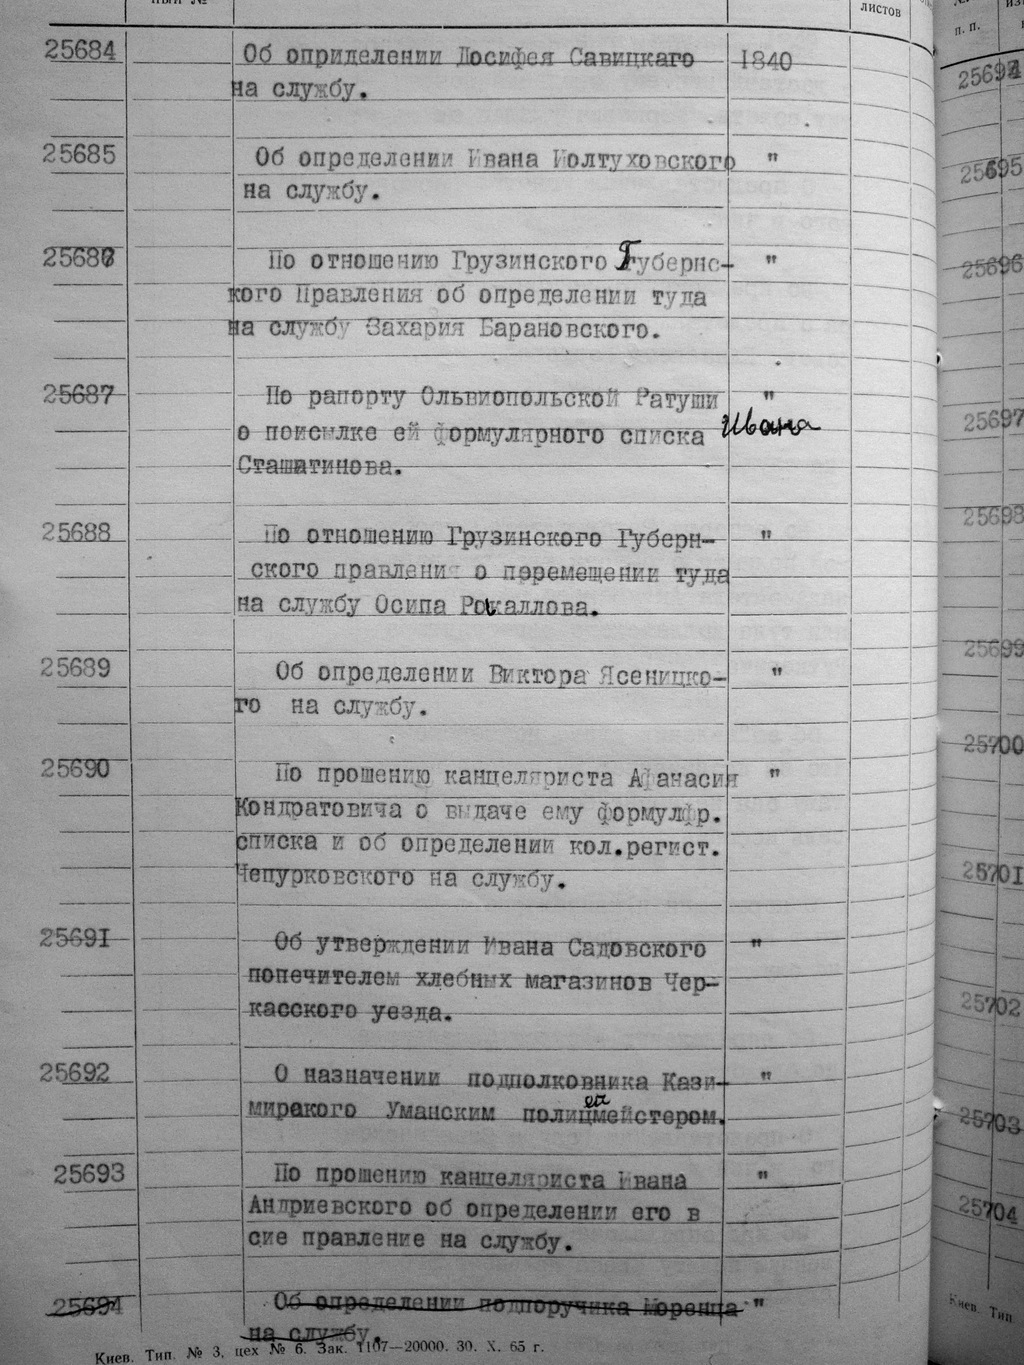 листов
п. п.
25684 Об оприделении Досифея Савицкаго 1840
на службу.
25685 Об определении Ивана Иолтуховского "
на службу.
25686 По отношению Грузинского Губернс- "
кого Правления об определении туда
на службу Захария Барановского.
25687 По рапорту Ольвиопольской Ратуши "
о поисылке ей формулярного списка Ивана
Сташатинова.
25688 По отношению Грузинского Губерн- "
ского правления о перемещении туда
на службу Осипа Рокаллова.
25689 Об определении Виктора Ясеницко- "
го на службу.
25690 По прошению канцеляриста Афанасия "
Кондратовича о выдаче ему формулфр.
списка и об определении кол.регист.
Чепурковского на службу.
25691 Об утверждении Ивана Садовского "
попечителем хлебных магазинов Чер-
касского уезда.
25692 О назначении подполковника Кази- "
миракого Уманским полицеймейстером.
25693 По прошению канцеляриста Ивана "
Андриевского об определении его в
сие правление на службу.
25694 Об определении подпоручика Моренца "
на службу.
Киев. Тип. № 3, цех № 6. Зак. 1107—20000. 30. X. 65 г.
25694
25695
25696
25697
25698
25699
25700
25701
25702
25703
25704
Киев. Тип